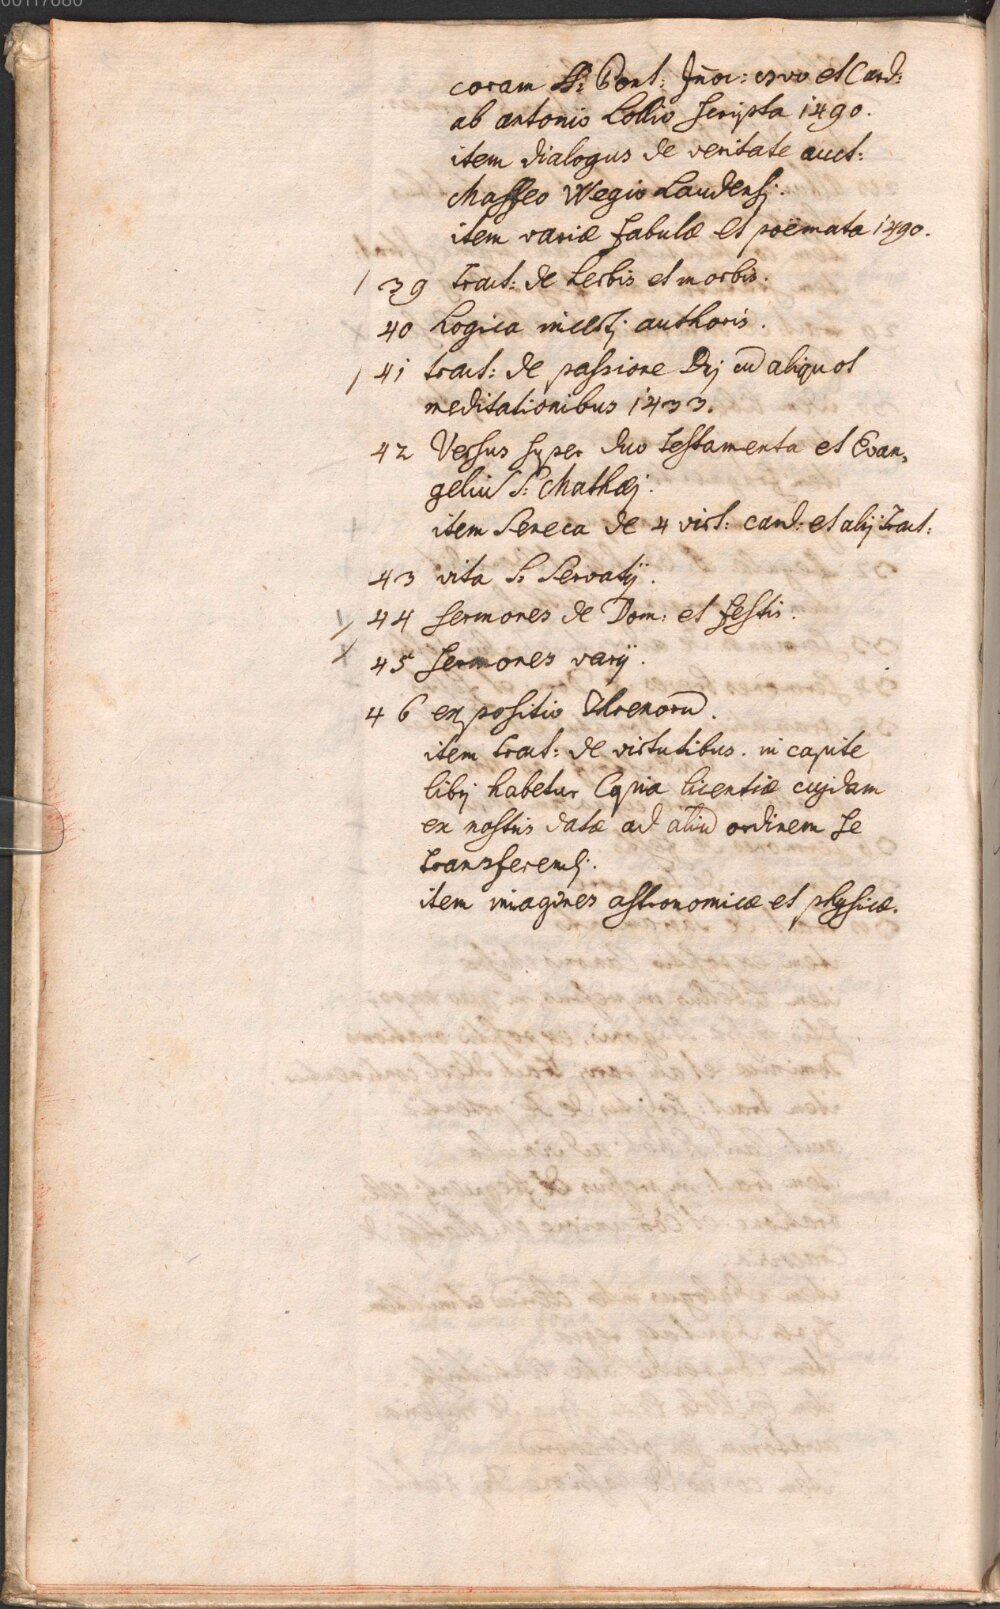 coram SS: Pont: Jñoc: et Card:
ab antonio Lollio scripta 1490.
item dialogus de veritate auct:
Maffeo Wegio Laudensj.
item variæ fabulæ et poëmata 1490.
39 tract: de herbis et morbis.
40 Logica incertj authoris.
41 tract: de passione Dnj cu̅ aliquot
meditationibus 1433.
42 Versus super duo testamenta et Evan,
geliu̅ S: Mathæj.
item Seneca de 4 virt: card: et alij tract:
43 vita S. Servatij.
44 sermones de Dom: et festis.
45 sermones varij.
46 expositio Threnoru̅.
item tract: de virtutibus. in capite
librj habetur Copia licentiæ cujdam
ex nostris datæ ad aliu̅ ordinem se
transferendj.
item imagines astronomicæ et physicæ.